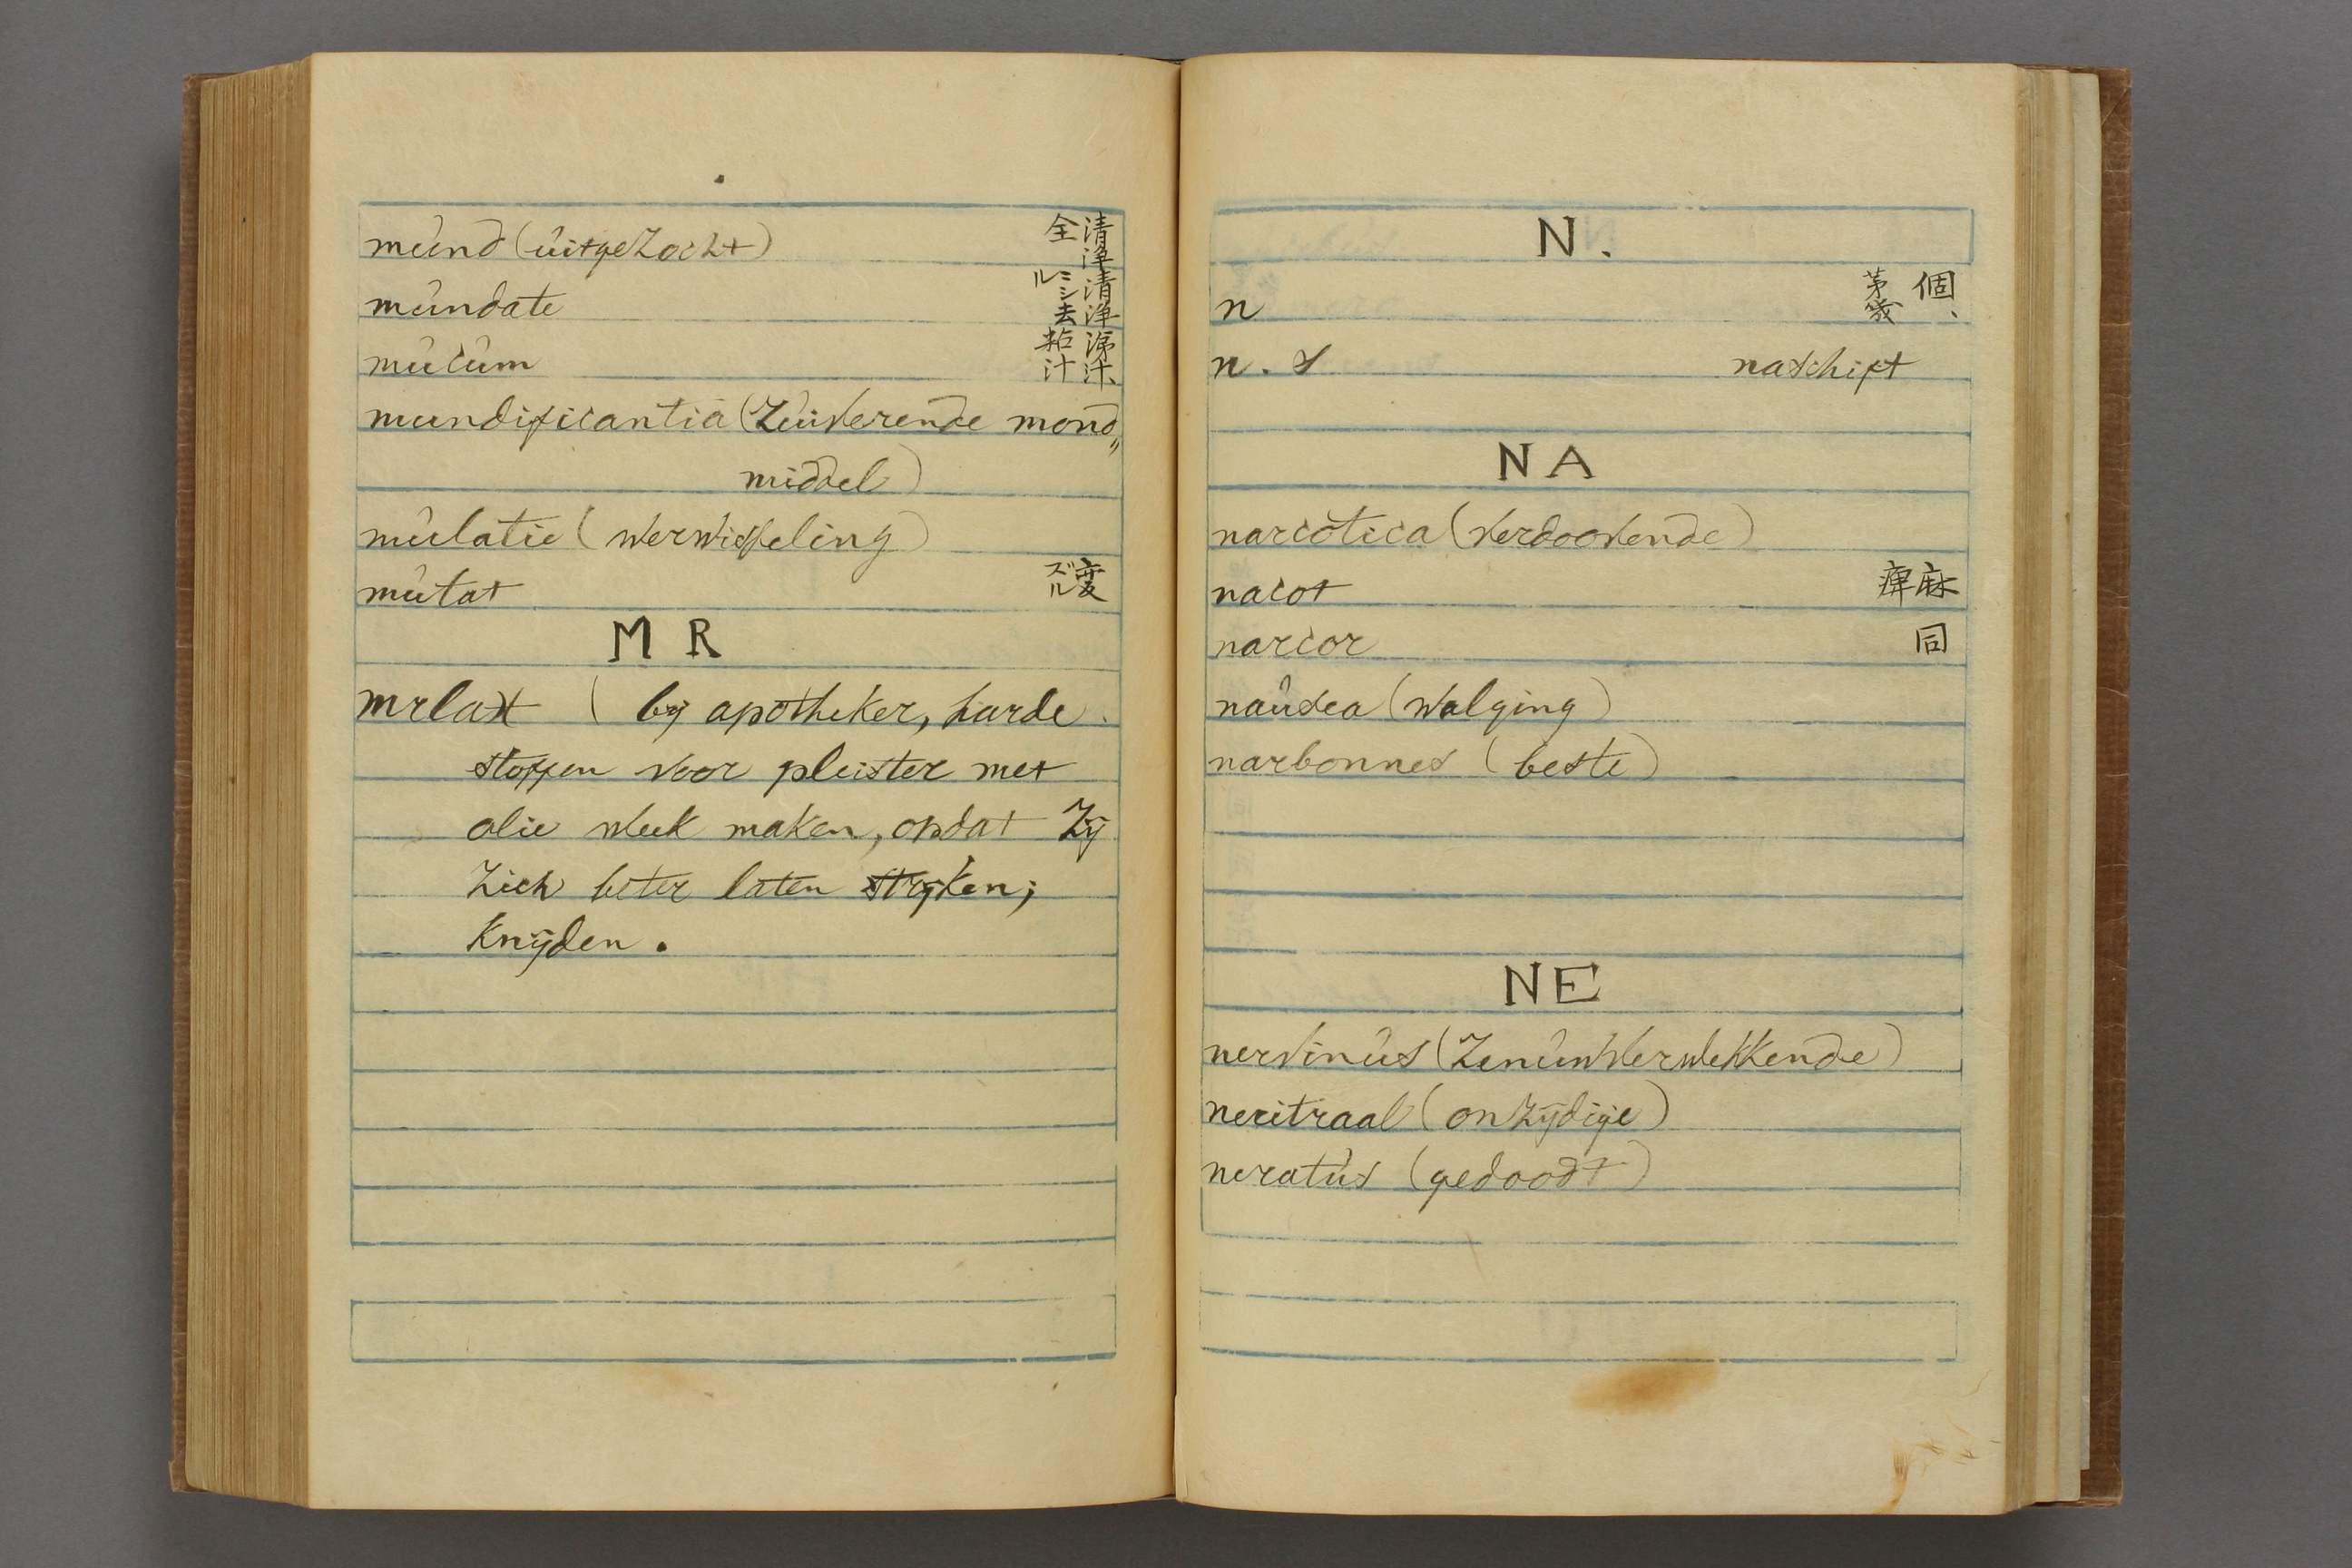 mûnd (ûitgezocht) 清浄 全
mûndate 清浄ミシ去ル
mûcûm 涕汁、粘汁
mundificantia (Zuiverende mond„
middel)
mûlatie (verwisseling)
mûtat 変ズル
M R
mrlaxt ( bÿ apotheker, harde
stoffen voor pleister met
olie week maken, opdat Zÿ
Zich beter laten strÿken;
Knÿden.
N.
n 個、 苐幾
n. s naschift
N A
narcotica (verdoovende)
nacot 麻痺
narcor 同
naûsea (walging)
narbonnes (beste)
NE
nervinûs (Zenûwverwekkende)
neutraal (onzÿdige)
neratûs (gedoodt)